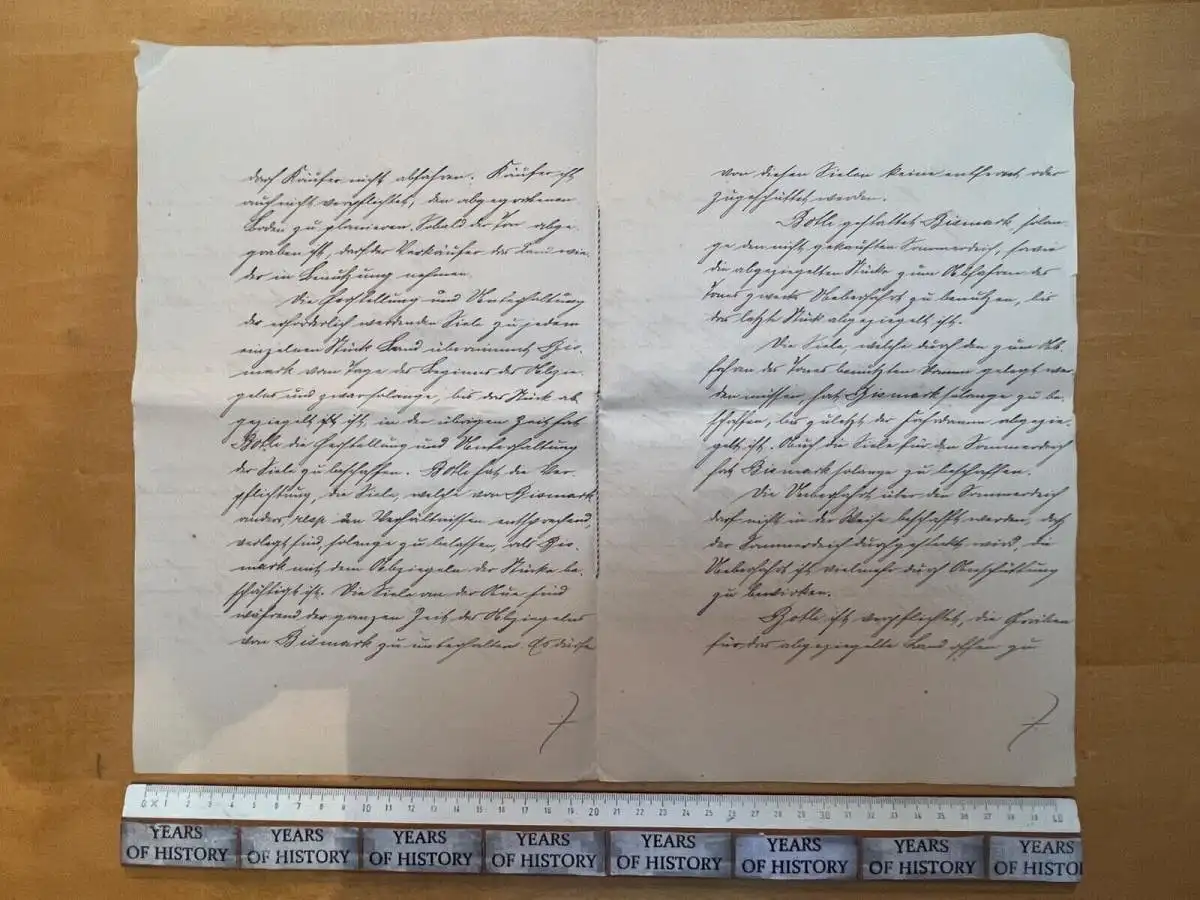 darf Käufer nicht abfahren. Käufer ist
auch nicht verpflichtet, den abgegrabenen
Boden zu planieren. Sobald der Ton abge-
graben ist, darf der Verkäufer das Land wie-
der in Benutzung nehmen.
Die Herstellung und Unterhaltung
der erforderlich werdenden Siele zu jedem
einzelnen Stück Land übernimmt Bis-
mark vom Tage des Beginnes des Abzie-
gelns und zwar solange, bis das Stück ab-
geziegelt ist, in der übrigen Zeit hat
Botli die Herstellung und Unterhaltung
der Siele zu beschaffen. Botli hat die Ver-
pflichtung, die Siele, welche von Bismark
anders, resp. den Verhältnissen entsprechend,
verlegt sind, solange zu belassen, als Bis-
mark mit dem Abziegeln der Stücke be-
schäftigt ist. Die Siele an der Aue sind
während der ganzen Zeit des Abziegelns
von Bismark zu unterhalten. Es dürfen
von diesen Sielen keine entfernt oder
zugeschüttet werden.
Botli gestattet Bismark, solan-
ge den nicht gekauften Sommerdeich, sowie
die abgeziegelten Stücke zum Abfahren des
Tones zwecks Ueberfahrt zu benutzen, bis
das letzte Stück abgeziegelt ist.
Die Siele, welche durch den zum Ab-
fahren des Tones benutzten Damm gelegt wer-
den müssen, hat Bismark solange zu be-
schaffen, bis zuletzt der Fahrdamm abgezie-
gelt ist. Auch die Siele für den Sommerdeich
hat Bismark solange zu beschaffen.
Die Ueberfahrt über den Sommerdeich
darf nicht in der Weise beschafft werden, daß
der Sommerdeich durchgestochen wird, die
Ueberfahrt ist vielmehr durch Anschüttung
zu bewirken.
Botli ist verpflichtet, die Gräben
für das abgeziegelte Land offen zu
0 1 2 3 4 5 6 7 8 9 10 11 12 13 14 15 16 17 18 19 20 21 22 23 24 25 26 27 28 29 30 31 32 33 34 35 36 37 38 39 40
YEARS OF HISTORY YEARS OF HISTORY YEARS OF HISTORY YEARS OF HISTORY YEARS OF HISTORY YEARS OF HISTORY YEARS OF HISTORY YEARS OF HISTO